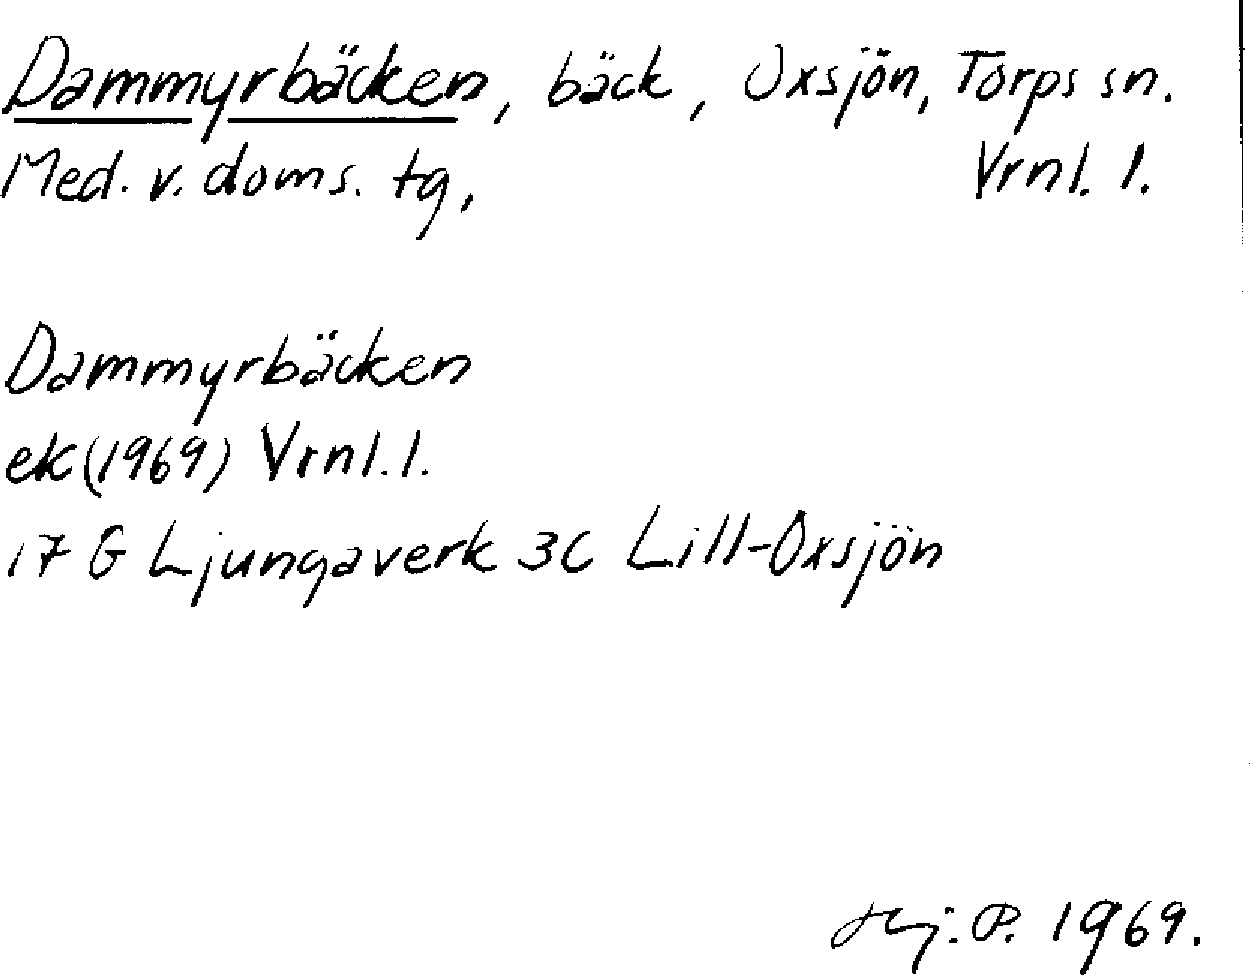 Dammyrbäcken, bäck, Oxsjön, Torps sn.
Med. v. doms. tg, Vrnl. l.
Dammyrbäcken
ek (1969) Vrnl. l.
17 G Ljungaverk 3C Lill-Oxsjön
Hj. P. 1969.